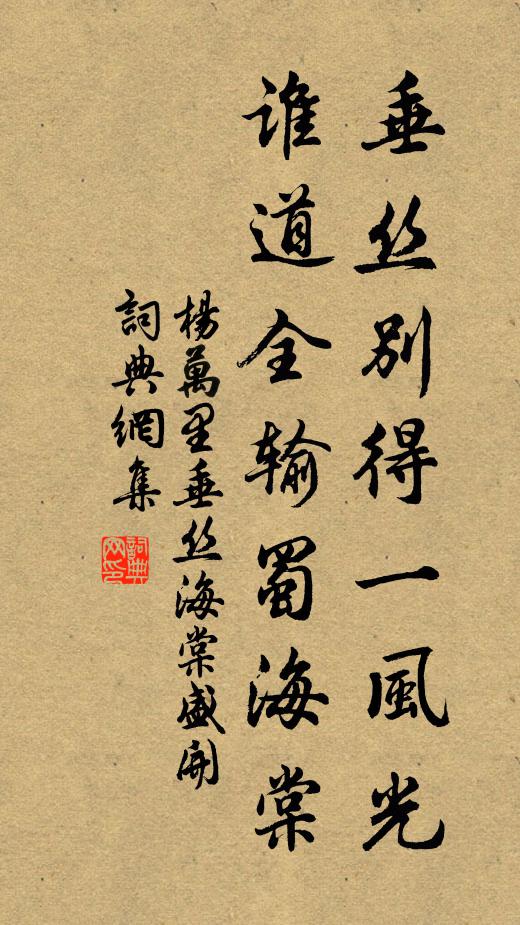 垂丝别得一風光
谁道全输蜀海棠
楊萬里垂丝海棠盛開
詞典網集
詞典网印